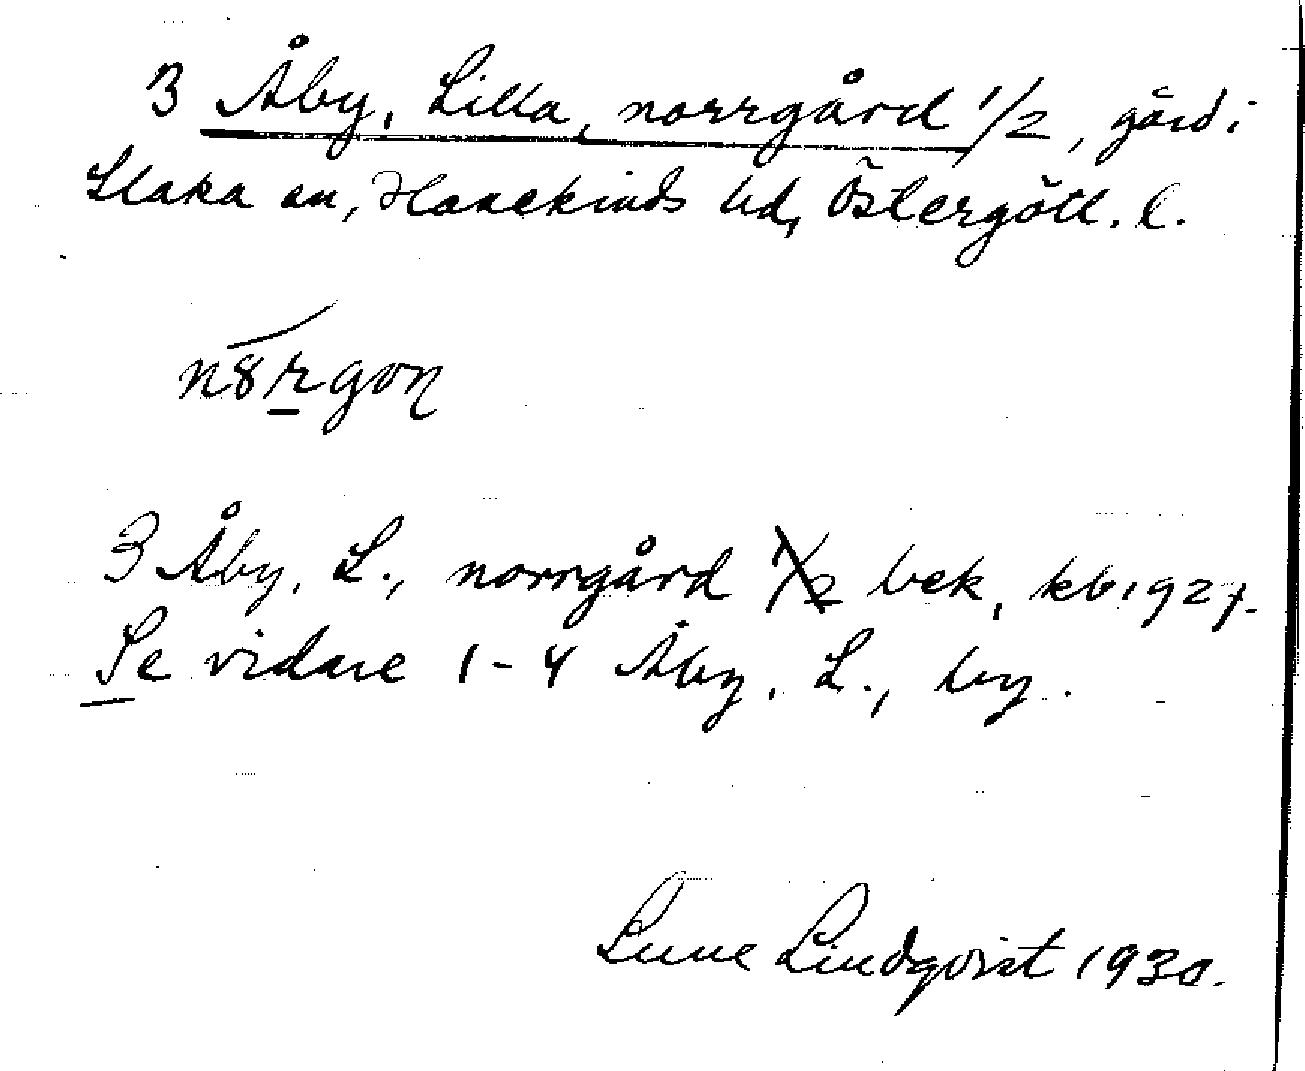 3 Åby, Lilla, norrgård 1/2, gård i
Slaka sn, Hanekinds hd, Östergötl. l.
n8rgoɳ
3 Åby, L., norrgård 1/2 bek, kb 1927.
Se vidare 1-4 Åby, L., by.
Sune Lindqvist 1930.